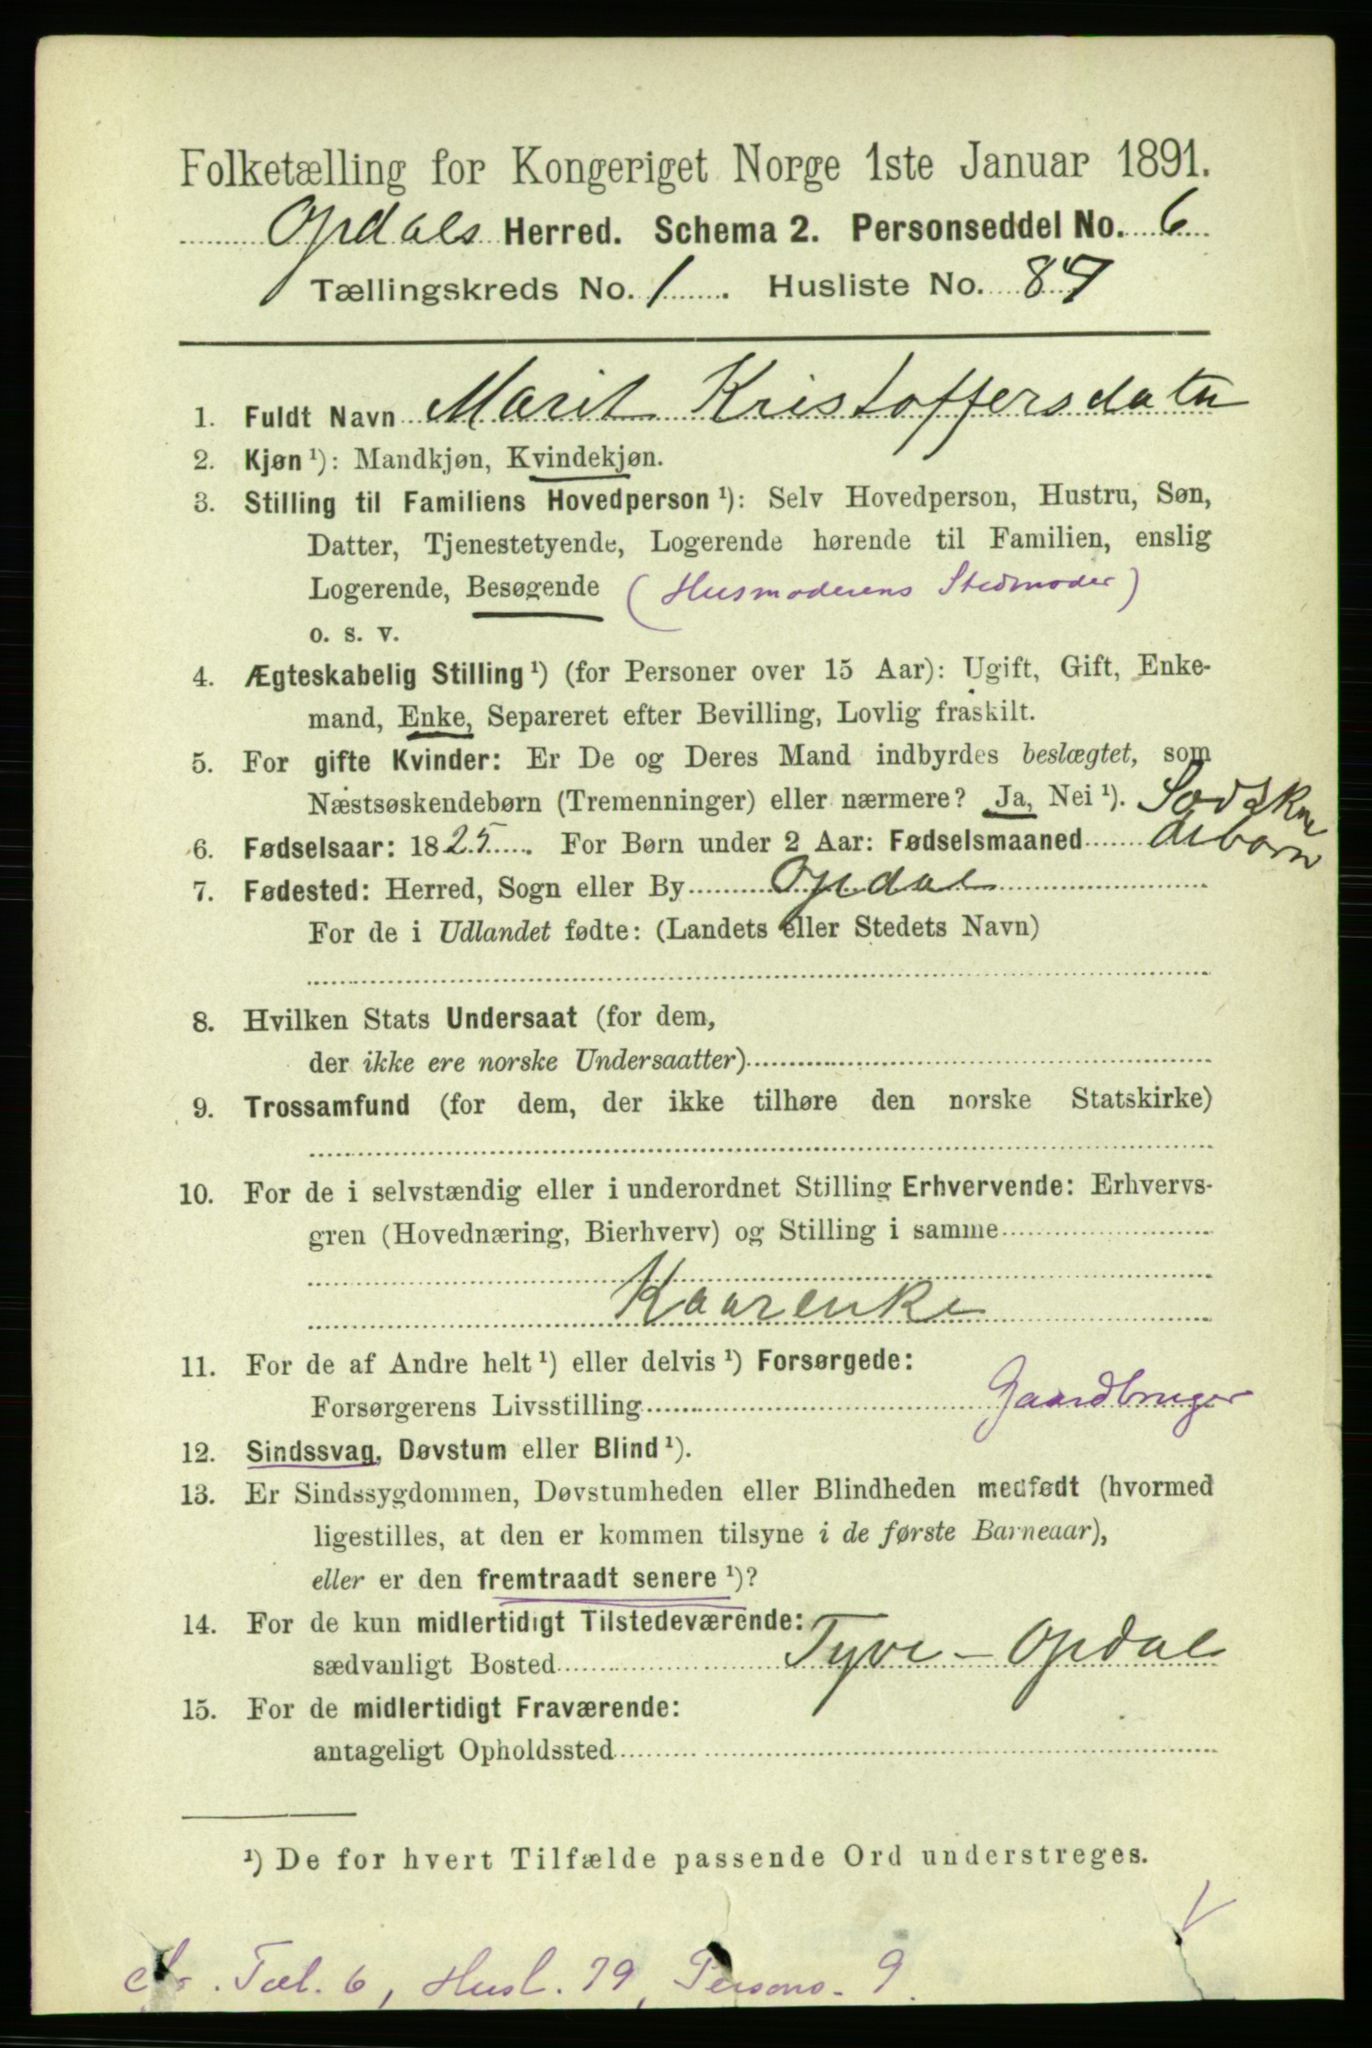 Folketælling for Kongeriget Norge 1ste Januar 1891.
Opdals Herred. Schema 2. Personseddel No. 6
Tællingskreds No. 1. Husliste No. 87
1. Fuldt Navn Marit Kristoffersdater
2. Kjøn ¹): Mandkjøn, Kvindekjøn.
3. Stilling til Familiens Hovedperson ¹): Selv Hovedperson, Hustru, Søn,
Datter, Tjenestetyende, Logerende hørende til Familien, enslig
Logerende, Besøgende (Husmoderens Stedmoder)
o. s. v.
4. Ægteskabelig Stilling ¹) (for Personer over 15 Aar): Ugift, Gift, Enke-
mand, Enke, Separeret efter Bevilling, Lovlig fraskilt.
5. For gifte Kvinder: Er De og Deres Mand indbyrdes beslægtet, som
Næstsøskendebørn (Tremenninger) eller nærmere? Ja, Nei ¹).
6. Fødselsaar: 1825. For Børn under 2 Aar: Fødselsmaaned
7. Fødested: Herred, Sogn eller By Opdal
For de i Udlandet fødte: (Landets eller Stedets Navn)
8. Hvilken Stats Undersaat (for dem,
der ikke ere norske Undersaatter)
9. Trossamfund (for dem, der ikke tilhøre den norske Statskirke)
10. For de i selvstændig eller i underordnet Stilling Erhvervende: Erhvervs-
gren (Hovednæring, Bierhverv) og Stilling i samme
Kaarenke
11. For de af Andre helt ¹) eller delvis ¹) Forsørgede:
Forsørgerens Livsstilling Gaardbruger
12. Sindssvag, Døvstum eller Blind ¹).
13. Er Sindssygdommen, Døvstumheden eller Blindheden medfødt (hvormed
ligestilles, at den er kommen tilsyne i de første Barneaar),
eller er den fremtraadt senere ¹)?
14. For de kun midlertidigt Tilstedeværende:
sædvanligt Bosted Tyve - Opdal
15. For de midlertidigt Fraværende:
antageligt Opholdssted
¹) De for hvert Tilfælde passende Ord understreges.
Tæl. 6, Husl. 79, Persons. 9.